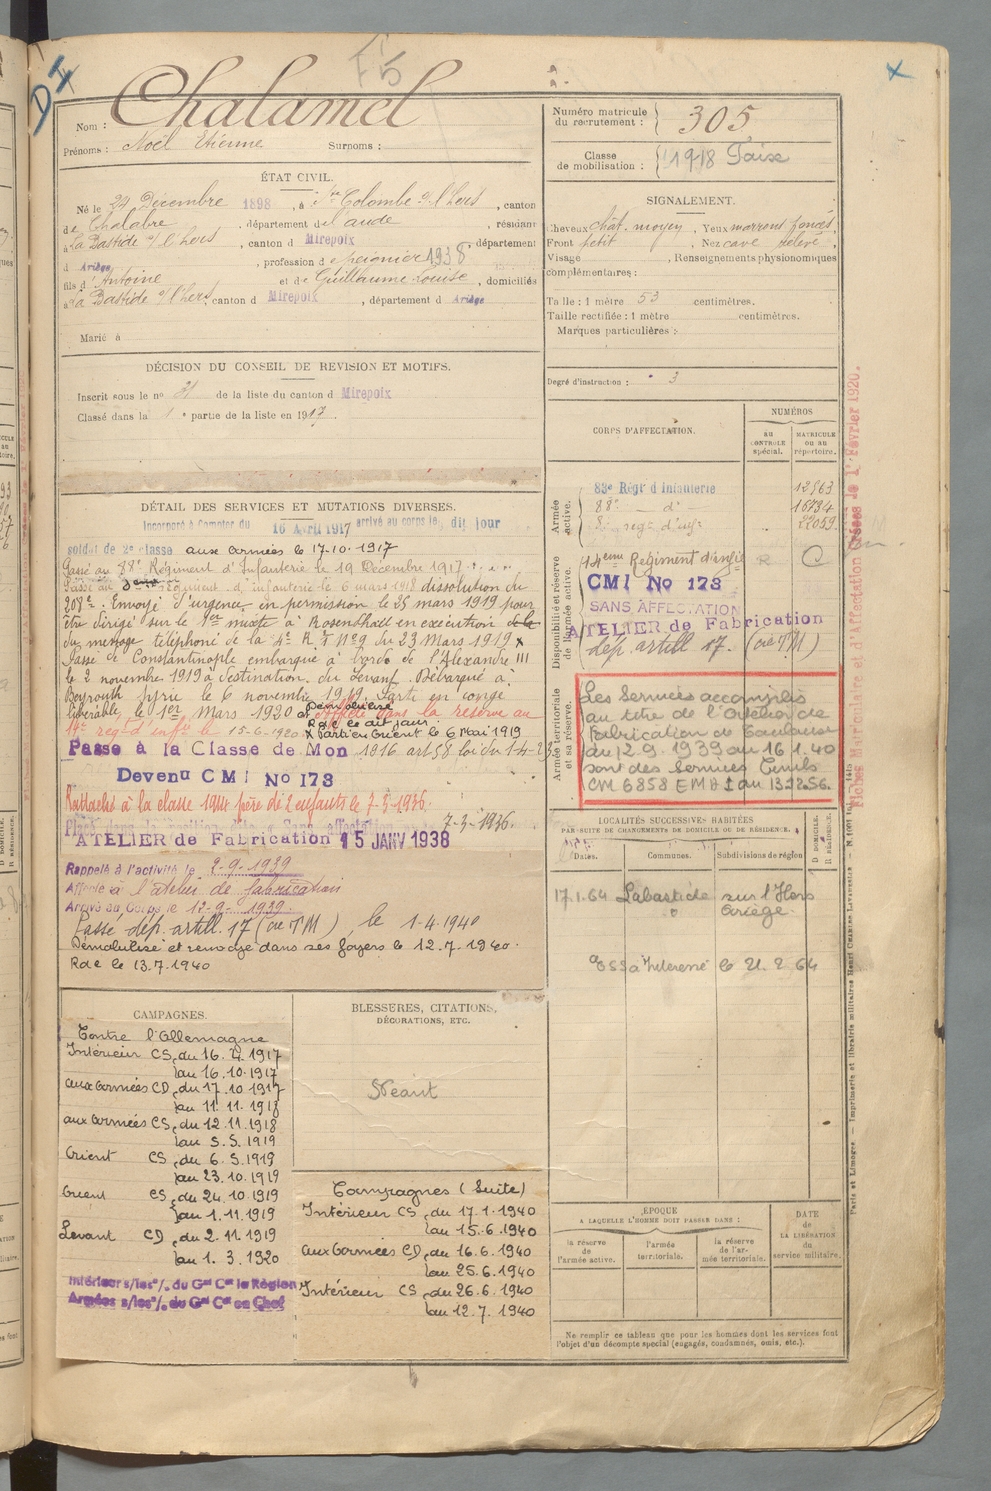 F 5
D I
Nom : Chalamel
Prénoms : Noël Etienne Surnoms :
Numéro matricule du recrutement : 305
Classe de mobilisation : 1918
ÉTAT CIVIL.
Né le 24 Décembre 1898, à Ste Colombe s/ l'hers, canton
de Chalabre, département de l'aude, résidant
à La Bastide s/ l'hers, canton d Mirepoix, département
d Ariège, profession de peignier 1938
fils d' Antoine et de Guillaume Louise, domiciliés
à La Bastide s/l'hers, canton d Mirepoix, département d Ariège
Marié à
SIGNALEMENT.
Cheveux chât. moyen, Yeux marrons foncés
Front petit, Nez cave relevé
Visage , Renseignements physionomiques
complémentaires :
Taille : 1 mètre 53 centimètres.
Taille rectifiée : 1 mètre centimètres.
Marques particulières :
Degré d'instruction : 3
DÉCISION DU CONSEIL DE REVISION ET MOTIFS.
Inscrit sous le n° 21 de la liste du canton d Mirepoix
Classé dans la 1 e partie de la liste en 1917.
DÉTAIL DES SERVICES ET MUTATIONS DIVERSES.
Incorporé à compter du 16 Avril 1917 arrivé au corps le dit jour
soldat de 2e classe aux armées le 17.10.1917
Passé au 88e Régiment d'Infanterie le 19 Décembre 1917
Passé au régiment d'infanterie le 6 mars 1918 dissolution du
208e. Envoyé d'urgence en permission le 25 mars 1919 pour
être dirigé sur le 1er mixte à Rosenthaël en exécution de la
du message téléphoné de la 4e R I N° 9 du 23 Mars 1919 x
Passé de Constantinople embarqué à bord de l'Alexandre III
le 2 novembre 1919 à destination du Levant. Débarqué à
Beyrouth Syrie le 6 novembre 1919. Parti en congé
libérable le 1er Mars 1920 et Affecté dans la réserve au
Démobilisé
Rdc le dit jour.
14e régt d'infie le 15-6-1920 X Parti en Orient le 6 Mai 1919
Passé à la Classe de Mon 1916 art 58 loi du 1-4-23
Devenu CMI No 173
Rattaché à la classe 1914 père de 2 enfants le 7-3-1936.
7-3-1936.
ATELIER de Fabrication 15 JANV 1938
Rappelé à l'activité le 2-9-1939
Affecté à l'atelier de fabrication
Arrivé au Corps le 12-9-1939.
Passé dép. artill. 17 (ou T M), le 1-4-1940
Démobilisé et renvoyé dans ses foyers le 12.7.1940.
Rdc le 13.7.1940
CORPS D'AFFECTATION.
NUMÉROS
AU CONTROLE spécial.
MATRICULE OU AU répertoire.
Armée active.
83e Régt d Infanterie 12863
88e — d° — 16734
8 regt d'infie 22059
Disponibilité et réserve de l'armée active.
14eme Régiment d'infie R C
CMI No 173
SANS AFFECTATION
ATELIER de Fabrication
dép. artill 17. (ou T M)
Armée territoriale et sa réserve.
Les Services accomplis
au titre de l'Atelier de
Fabrication de Toulouse
du 2.9.1939 au 16.1.40
sont des Services Civils
CM 6858 EMA 1 du 13.12.56.
LOCALITÉS SUCCESSIVES HABITÉES
PAR SUITE DE CHANGEMENTS DE DOMICILE OU DE RÉSIDENCE.
Dates. Communes. Subdivisions de région D. DOMICILE. R. RÉSIDENCE.
17.1.64 Labastide sur l'Hers
Ariège
ESS à l'intéressé le 21.2.64
CAMPAGNES.
Contre l'Allemagne
Intérieur CS du 16.4.1917
au 16.10.1917
aux Armées CD du 17.10.1917
au 11.11.1918
aux Armées CS du 12.11.1918
au 5.5.1919
Orient CS du 6.5.1919
au 23.10.1919
Orient CS du 24.10.1919
au 1.11.1919
Levant CD du 2.11.1919
au 1.3.1920
BLESSURES, CITATIONS,
DÉCORATIONS, ETC.
Néant
Campagnes (Suite)
Intérieur CS du 17.1.1940
au 15.6.1940
aux Armées CD du 16.6.1940
au 25.6.1940
Intérieur CS du 26.6.1940
au 12.7.1940
ÉPOQUE
A LAQUELLE L'HOMME DOIT PASSER DANS :
la réserve de l'armée active.
l'armée territoriale.
la réserve de l'armée territoriale.
DATE de LA LIBÉRATION du service militaire.
Ne remplir ce tableau que pour les hommes dont les services font
l'objet d'un décompte spécial (engagés, condamnés, omis, etc.).
Paris et Limoges. — Imprimerie et librairie militaires Henri CHARLES-LAVAUZELLE